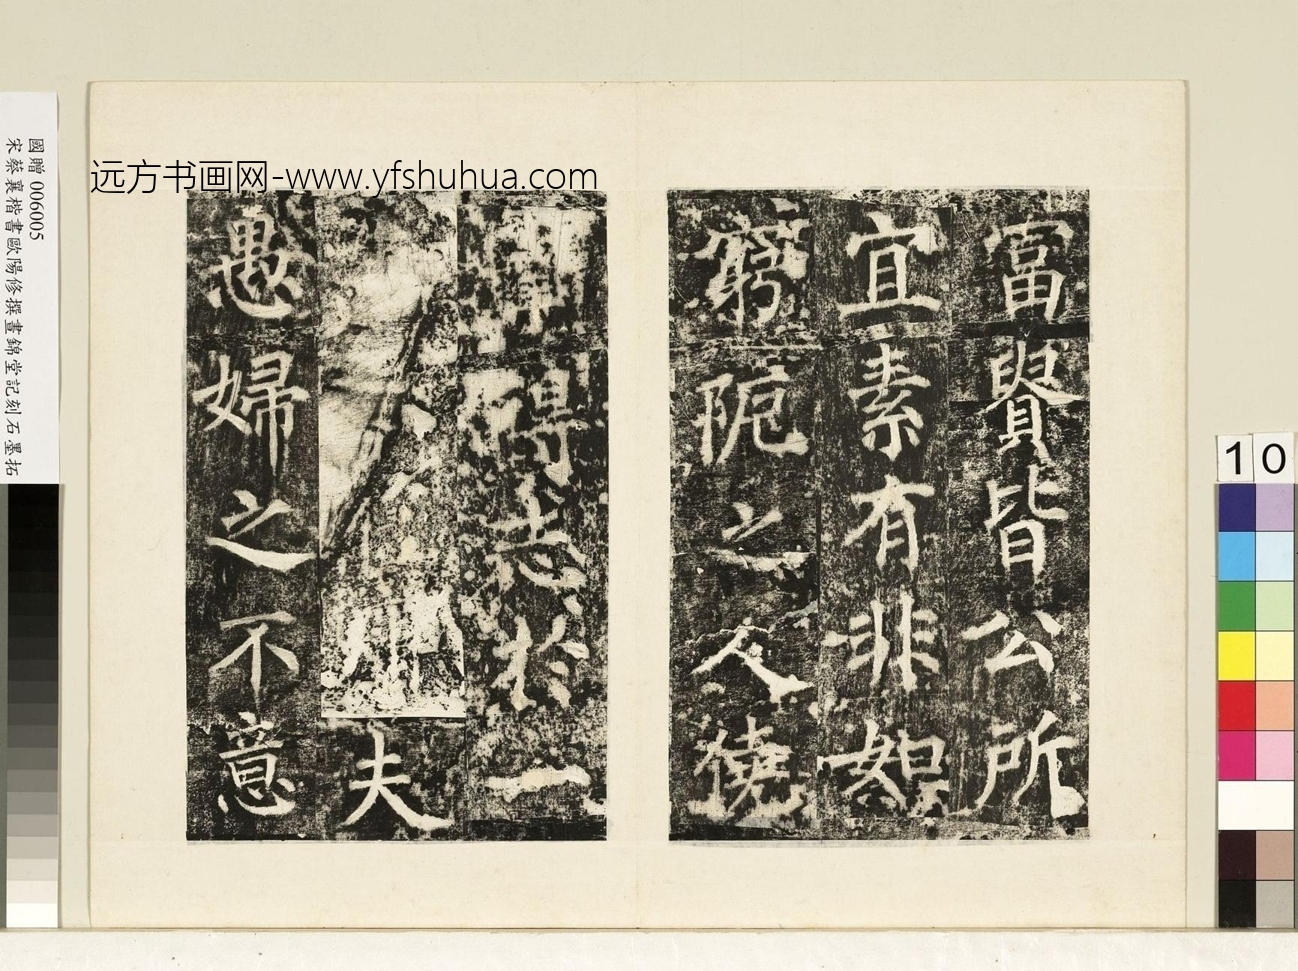 远方书画网-www.yfshuhua.com
國贈 006005
宋蔡襄楷書歐陽修撰晝錦堂記刻石墨拓
富貴皆公所
宜素有非如
窮阨之人僥
得志於一
夫
愚婦之不意
10